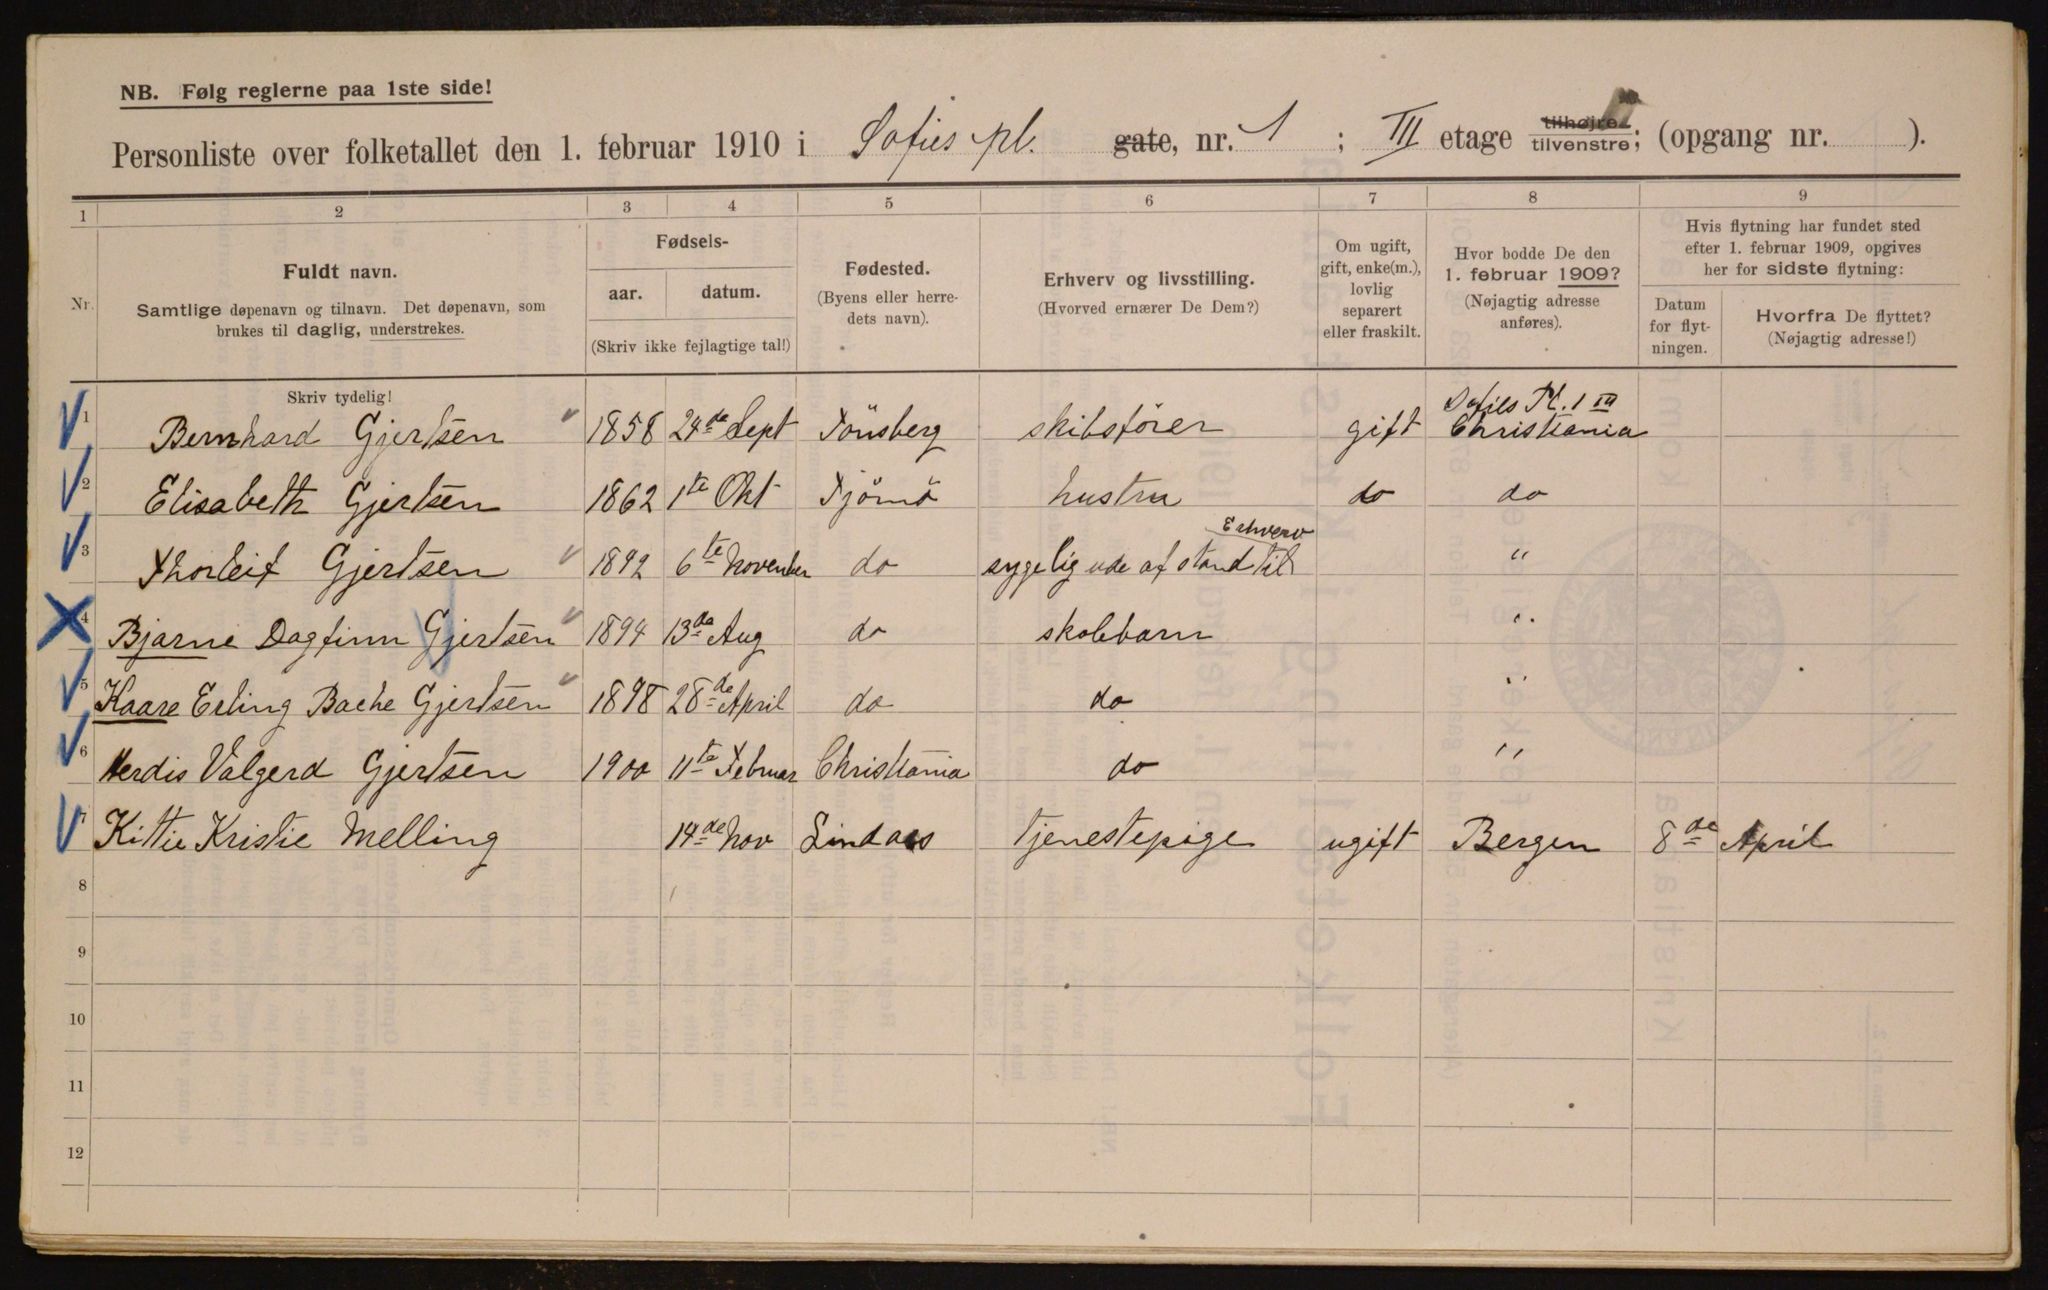 NB. Følg reglerne paa 1ste side!
Personliste over folketallet den 1. februar 1910 i Sofies pl. gate, nr. 1 ; III etage tilhøjre tilvenstre; (opgang nr. ).
1 2 3 4 5 6 7 8 9
Nr.
Fuldt navn.
Samtlige døpenavn og tilnavn. Det døpenavn, som
brukes til daglig, understrekes.
Fødsels-
aar. datum.
(Skriv ikke fejlagtige tal!)
Fødested.
(Byens eller herre-
dets navn).
Erhverv og livsstilling.
(Hvorved ernærer De Dem?)
Om ugift,
gift, enke(m.),
lovlig
separert
eller fraskilt.
Hvor bodde De den
1. februar 1909?
(Nøjagtig adresse
anføres).
Hvis flytning har fundet sted
efter 1. februar 1909, opgives
her for sidste flytning:
Datum
for flyt-
ningen.
Hvorfra De flyttet?
(Nøjagtig adresse!)
Skriv tydelig!
Sofies Pl. 1 III
1 Bernhard Gjertsen 1858 24de Sept Tönsberg skibsfører gift Christiania
2 Elisabeth Gjertsen 1862 1te Okt Tjömö hustru do do
Erhverv
3 Thorleif Gjertsen 1892 6te November do sygelig ude af stand til "
4 Bjarne Dagfinn Gjertsen 1894 13de Aug do skolebarn "
5 Kaare Erling Bache Gjertsen 1898 28de April do do "
6 Herdis Valgerd Gjertsen 1900 11te Februar Christiania do "
7 Kittie Kristie Melling 14de Nov Lindaas tjenestepige ugift Bergen 8de April
8
9
10
11
12